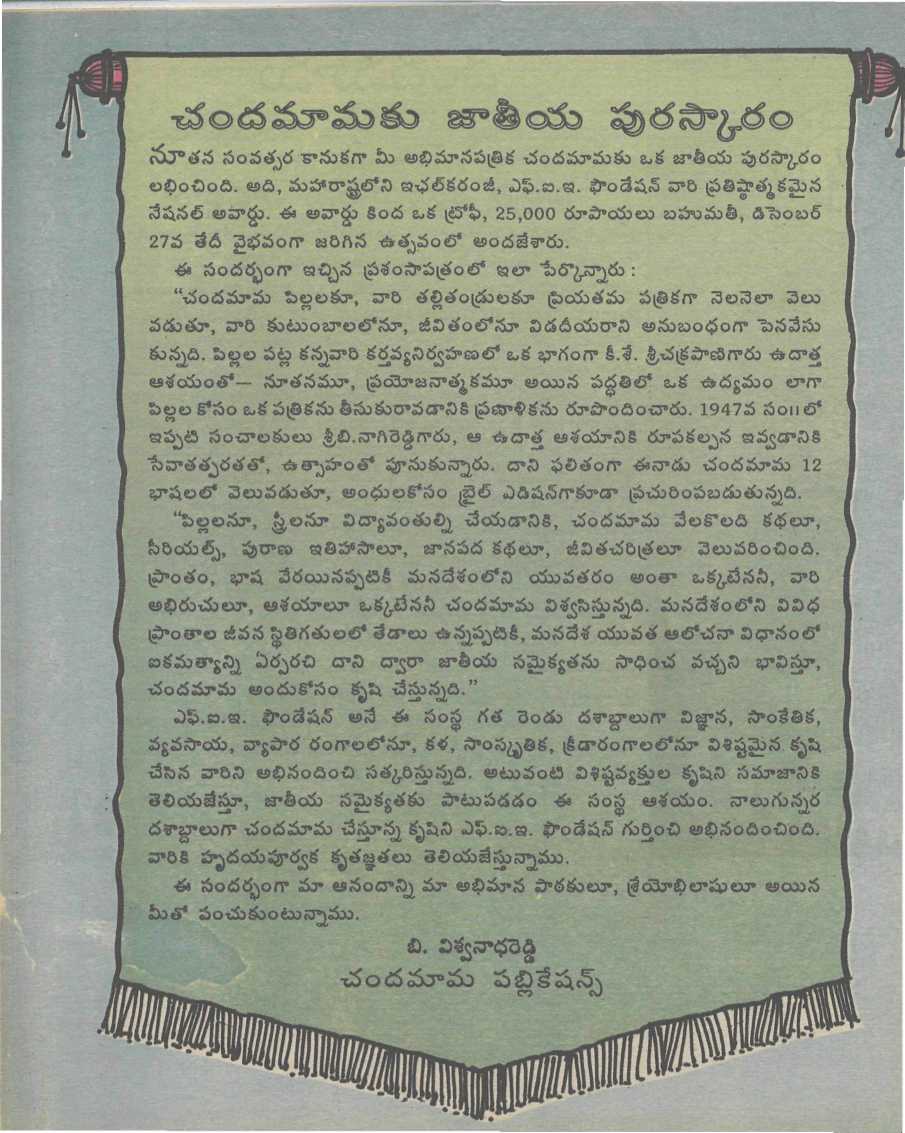 చందమామకు జాతీయ పురస్కారం
నూతన సంవత్సర కానుకగా మీ అభిమానపత్రిక చందమామకు ఒక జాతీయ పురస్కారం
లభించింది. అది, మహారాష్ట్రలోని ఇఛల్‌కరంజీ, ఎఫ్.ఐ.ఇ. ఫౌండేషన్ వారి ప్రతిష్ఠాత్మకమైన
నేషనల్ అవార్డు. ఈ అవార్డు కింద ఒక ట్రోఫీ, 25,000 రూపాయలు బహుమతీ, డిసెంబర్
27వ తేదీ వైభవంగా జరిగిన ఉత్సవంలో అందజేశారు.
ఈ సందర్భంగా ఇచ్చిన ప్రశంసాపత్రంలో ఇలా పేర్కొన్నారు :
“చందమామ పిల్లలకూ, వారి తల్లితండ్రులకూ ప్రియతమ పత్రికగా నెలనెలా వెలు
వడుతూ, వారి కుటుంబాలలోనూ, జీవితంలోనూ విడదీయరాని అనుబంధంగా పెనవేసు
కున్నది. పిల్లల పట్ల కన్నవారి కర్తవ్యనిర్వహణలో ఒక భాగంగా కీ.శే. శ్రీచక్రపాణిగారు ఉదాత్త
ఆశయంతో— నూతనమూ, ప్రయోజనాత్మకమూ అయిన పద్ధతిలో ఒక ఉద్యమం లాగా
పిల్లల కోసం ఒక పత్రికను తీసుకురావడానికి ప్రణాళికను రూపొందించారు. 1947వ సం॥లో
ఇప్పటి సంచాలకులు శ్రీబి.నాగిరెడ్డిగారు, ఆ ఉదాత్త ఆశయానికి రూపకల్పన ఇవ్వడానికి
సేవాతత్పరతతో, ఉత్సాహంతో పూనుకున్నారు. దాని ఫలితంగా ఈనాడు చందమామ 12
భాషలలో వెలువడుతూ, అంధులకోసం బ్రైల్ ఎడిషన్‌గాకూడా ప్రచురింపబడుతున్నది.
“పిల్లలనూ, స్త్రీలనూ విద్యావంతుల్ని చేయడానికి, చందమామ వేలకొలది కథలూ,
సీరియల్స్, పురాణ ఇతిహాసాలూ, జానపద కథలూ, జీవితచరిత్రలూ వెలువరించింది.
ప్రాంతం, భాష వేరయినప్పటికీ మనదేశంలోని యువతరం అంతా ఒక్కటేననీ, వారి
అభిరుచులూ, ఆశయాలూ ఒక్కటేననీ చందమామ విశ్వసిస్తున్నది. మనదేశంలోని వివిధ
ప్రాంతాల జీవన స్థితిగతులలో తేడాలు ఉన్నప్పటికీ, మనదేశ యువత ఆలోచనా విధానంలో
ఐకమత్యాన్ని ఏర్పరచి దాని ద్వారా జాతీయ సమైక్యతను సాధించ వచ్చని భావిస్తూ,
చందమామ అందుకోసం కృషి చేస్తున్నది.”
ఎఫ్.ఐ.ఇ. ఫౌండేషన్ అనే ఈ సంస్థ గత రెండు దశాబ్దాలుగా విజ్ఞాన, సాంకేతిక,
వ్యవసాయ, వ్యాపార రంగాలలోనూ, కళ, సాంస్కృతిక, క్రీడారంగాలలోనూ విశిష్టమైన కృషి
చేసిన వారిని అభినందించి సత్కరిస్తున్నది. అటువంటి విశిష్టవ్యక్తుల కృషిని సమాజానికి
తెలియజేస్తూ, జాతీయ సమైక్యతకు పాటుపడడం ఈ సంస్థ ఆశయం. నాలుగున్నర
దశాబ్దాలుగా చందమామ చేస్తూన్న కృషిని ఎఫ్.ఐ.ఇ. ఫౌండేషన్ గుర్తించి అభినందించింది.
వారికి హృదయపూర్వక కృతజ్ఞతలు తెలియజేస్తున్నాము.
ఈ సందర్భంగా మా ఆనందాన్ని మా అభిమాన పాఠకులూ, శ్రేయోభిలాషులూ అయిన
మీతో పంచుకుంటున్నాము.
బి. విశ్వనాధరెడ్డి
చందమామ పబ్లికేషన్స్